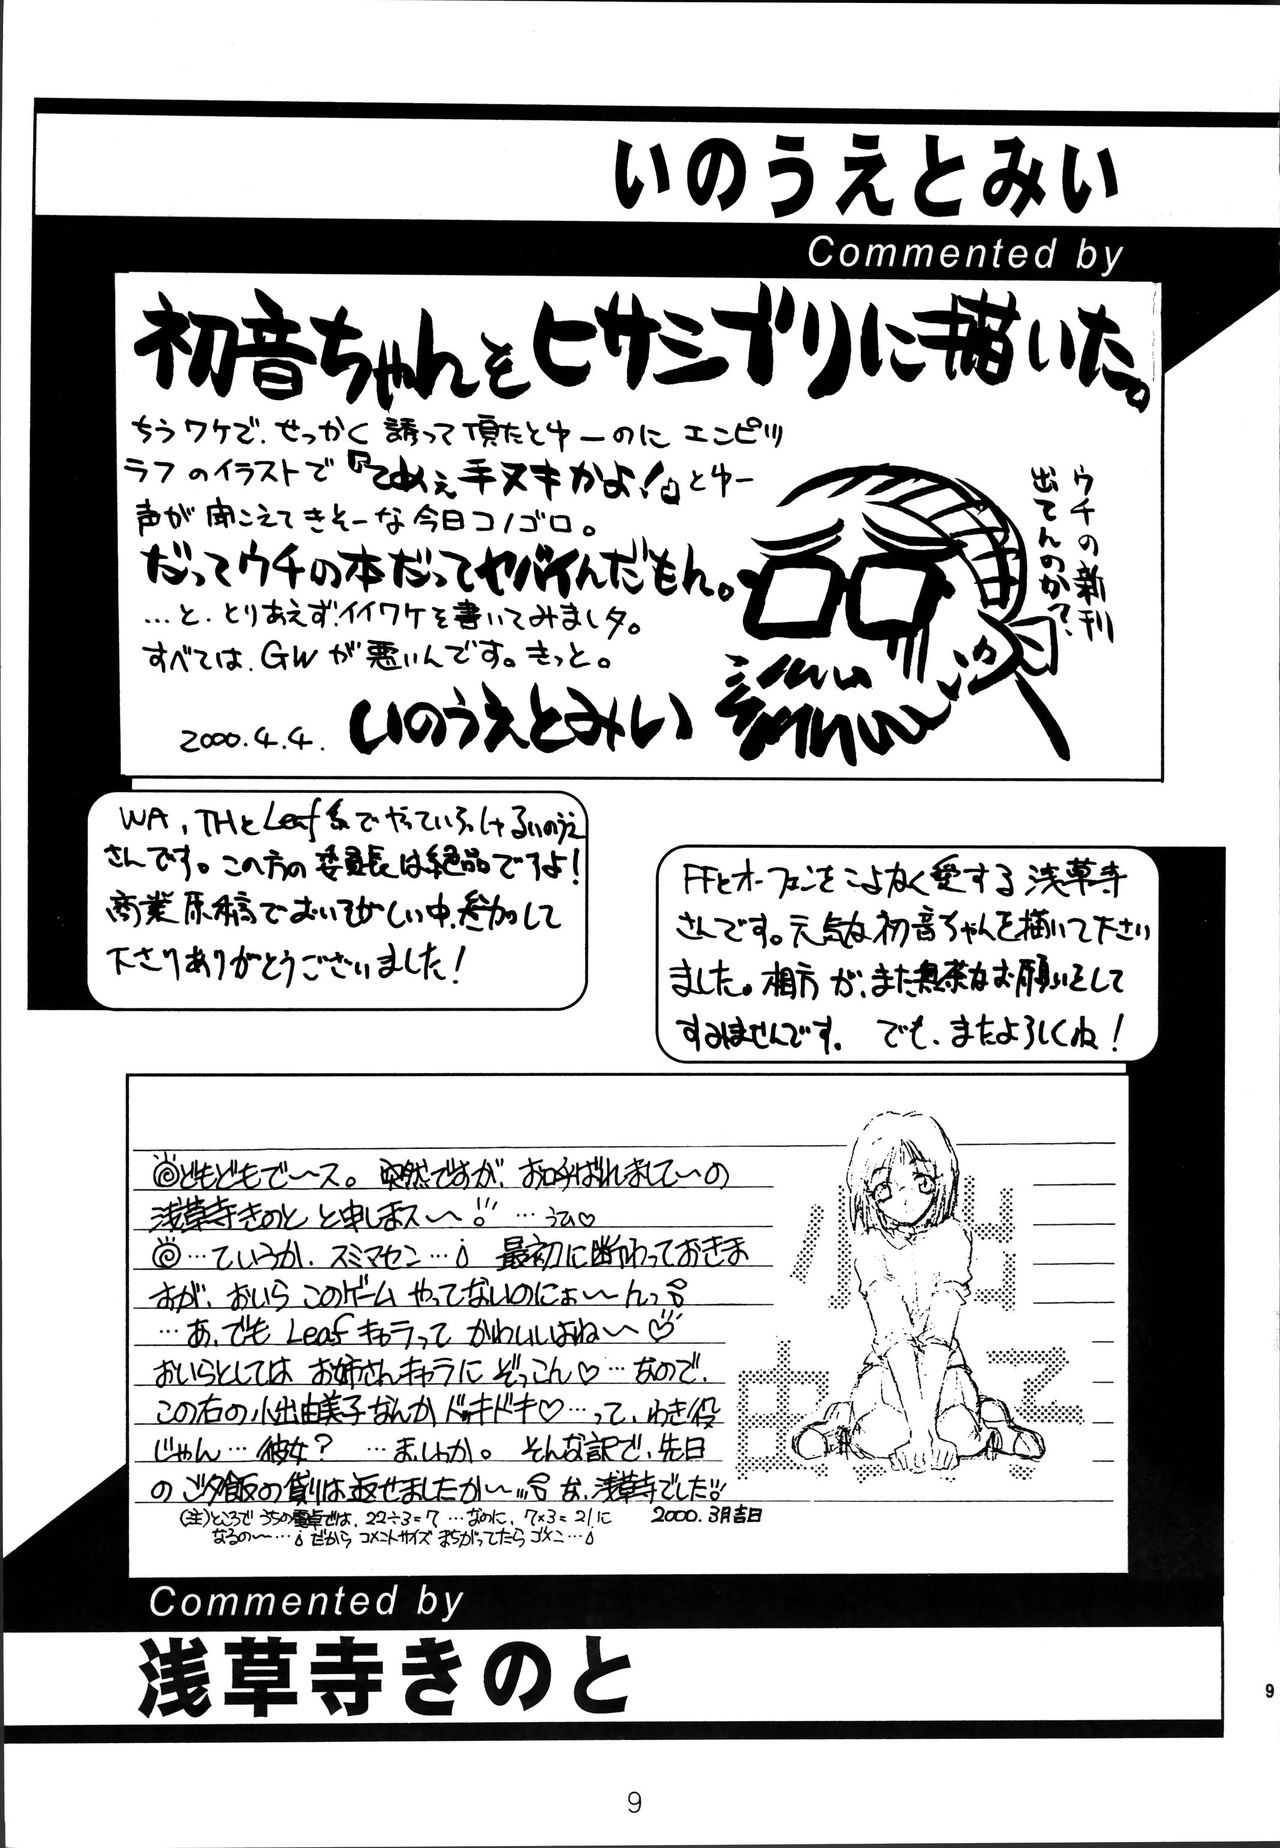 いのうえとみい
Commented by
初音ちゃんをヒサシブリに描いた。
ちうワケで、せっかく誘って頂たとゆーのに エンピツ
ラフのイラストで『てめぇ手ヌキかよ!』とゆー
声が聞こえてきそーな今日コノゴロ。
だってウチの本だってヤバイんだもん。
…と、とりあえず、イイワケを書いてみましタ。
すべては、GWが悪いんです。きっと。
2000.4.4. いのうえとみい
ウチの新刊
出てんのか?
WA、THとLeaf系でやっていらっしゃるいのうえ
さんです。この方の委員長は絶品ですよ!
商業原稿でおいそがしい中、参加して
下さりありがとうございました!
FFとオーフェンをこよなく愛する浅草寺
さんです。元気な初音ちゃんを描いて下さい
ました。相方が、また無茶なお願いをして
すみませんです。 でも、またよろしくね!
どもどもで〜ス。 突然ですが、お呼ばれしまして〜の
浅草寺きのと と申しまス〜! …うひ♡
…ていうか、スミマセン… 最初に断わっておきま
すが、おいら このゲーム やってないのにぉ〜んっ
…あ、でも Leafキャラって かわいいよね〜♡
おいらとしては お姉さんキャラに ぞっこん♡…なので、
この右の小出由美子なんか ドッキドキ♡…って、わき役
じゃん…彼女? …ま、しゃか。 そんな訳で、先日
の ご夕飯の借りは返せましたか〜… な、浅草寺でした!!
(注)ところで うちの電卓では、22÷3=7 …なのに、7×3=21に
なるの〜… だから コメントサイズ まちがってたら ゴメン…
2000.3月吉日
小出
由美子
Commented by
浅草寺きのと
9
9